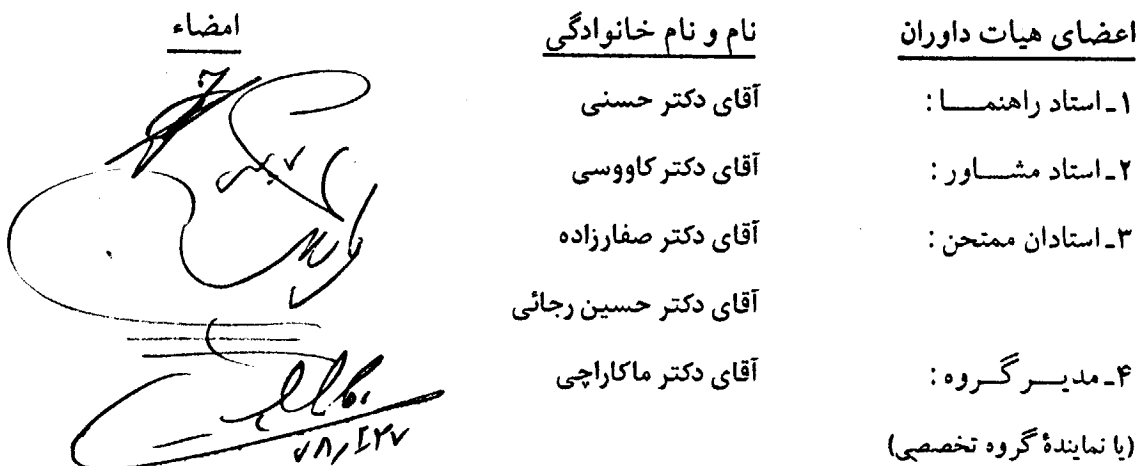 اعضای هیات داوران نام و نام خانوادگی امضاء
۱ـ استاد راهنمـــــا : آقای دکتر حسنی
۲ـ استاد مشـــاور : آقای دکتر کاووسی
۳ـ استادان ممتحن : آقای دکتر صفارزاده
آقای دکتر حسین رجائی
۴ـ مدیـــر گـــروه : آقای دکتر ماکاراچی
(یا نمایندهٔ گروه تخصصی)